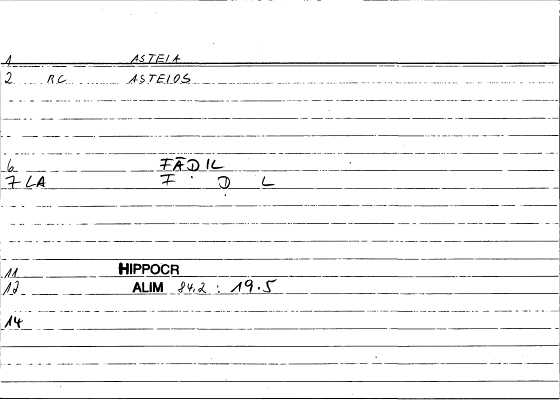 1 ASTEIA
2 RC ASTEIOS
6 FĀḌIL
7 LA F Ḍ L
11 HIPPOCR
12 ALIM 84.2 : 19.5
14